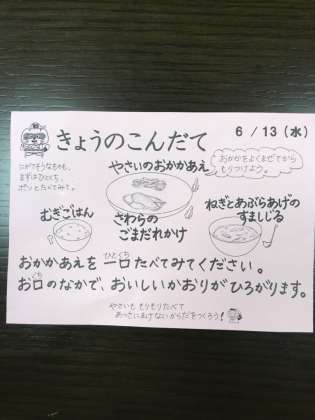 きょうのこんだて
6 / 13 (水)
にがてそうなものも、
まずはひとくち、
ポンとたべてみて。
やさいのおかかあえ
おかかをよくまぜてから
もりつけよう。
むぎごはん
さわらの
ごまだれかけ
ねぎとあぶらあげの
すましじる
ひとくち
おかかあえを 一口 たべてみてください。
くち
お口のなかで、おいしいかおりがひろがります。
やさいも もりもりたべて
あつさにまけないからだをつくろう!